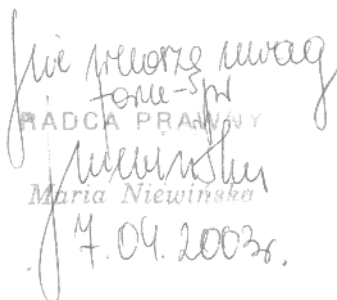 nie wnoszę uwag
form-pr
RADCA PRAWNY
Niewińska
Maria Niewińska
7.04.2003r.